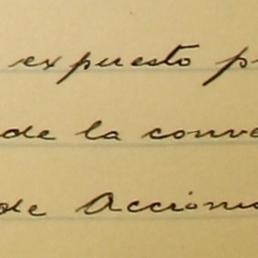 expuesto p
de la conve
de Accion